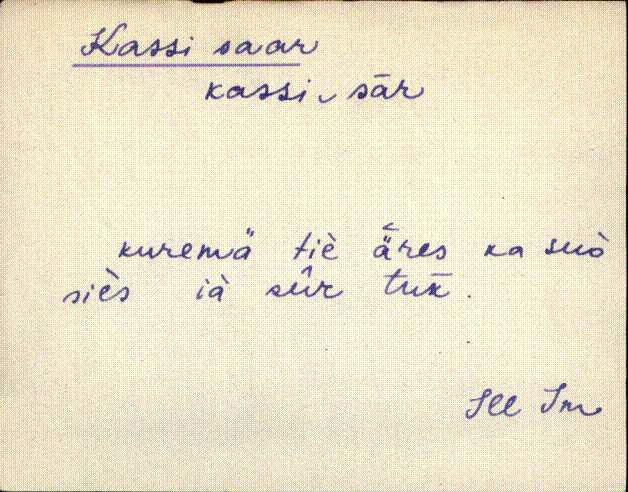 Kassi saar
kassi ̮ sār
kuremä tiè äres ka suò
siès ià sûr tuk̄.
Jll Jm